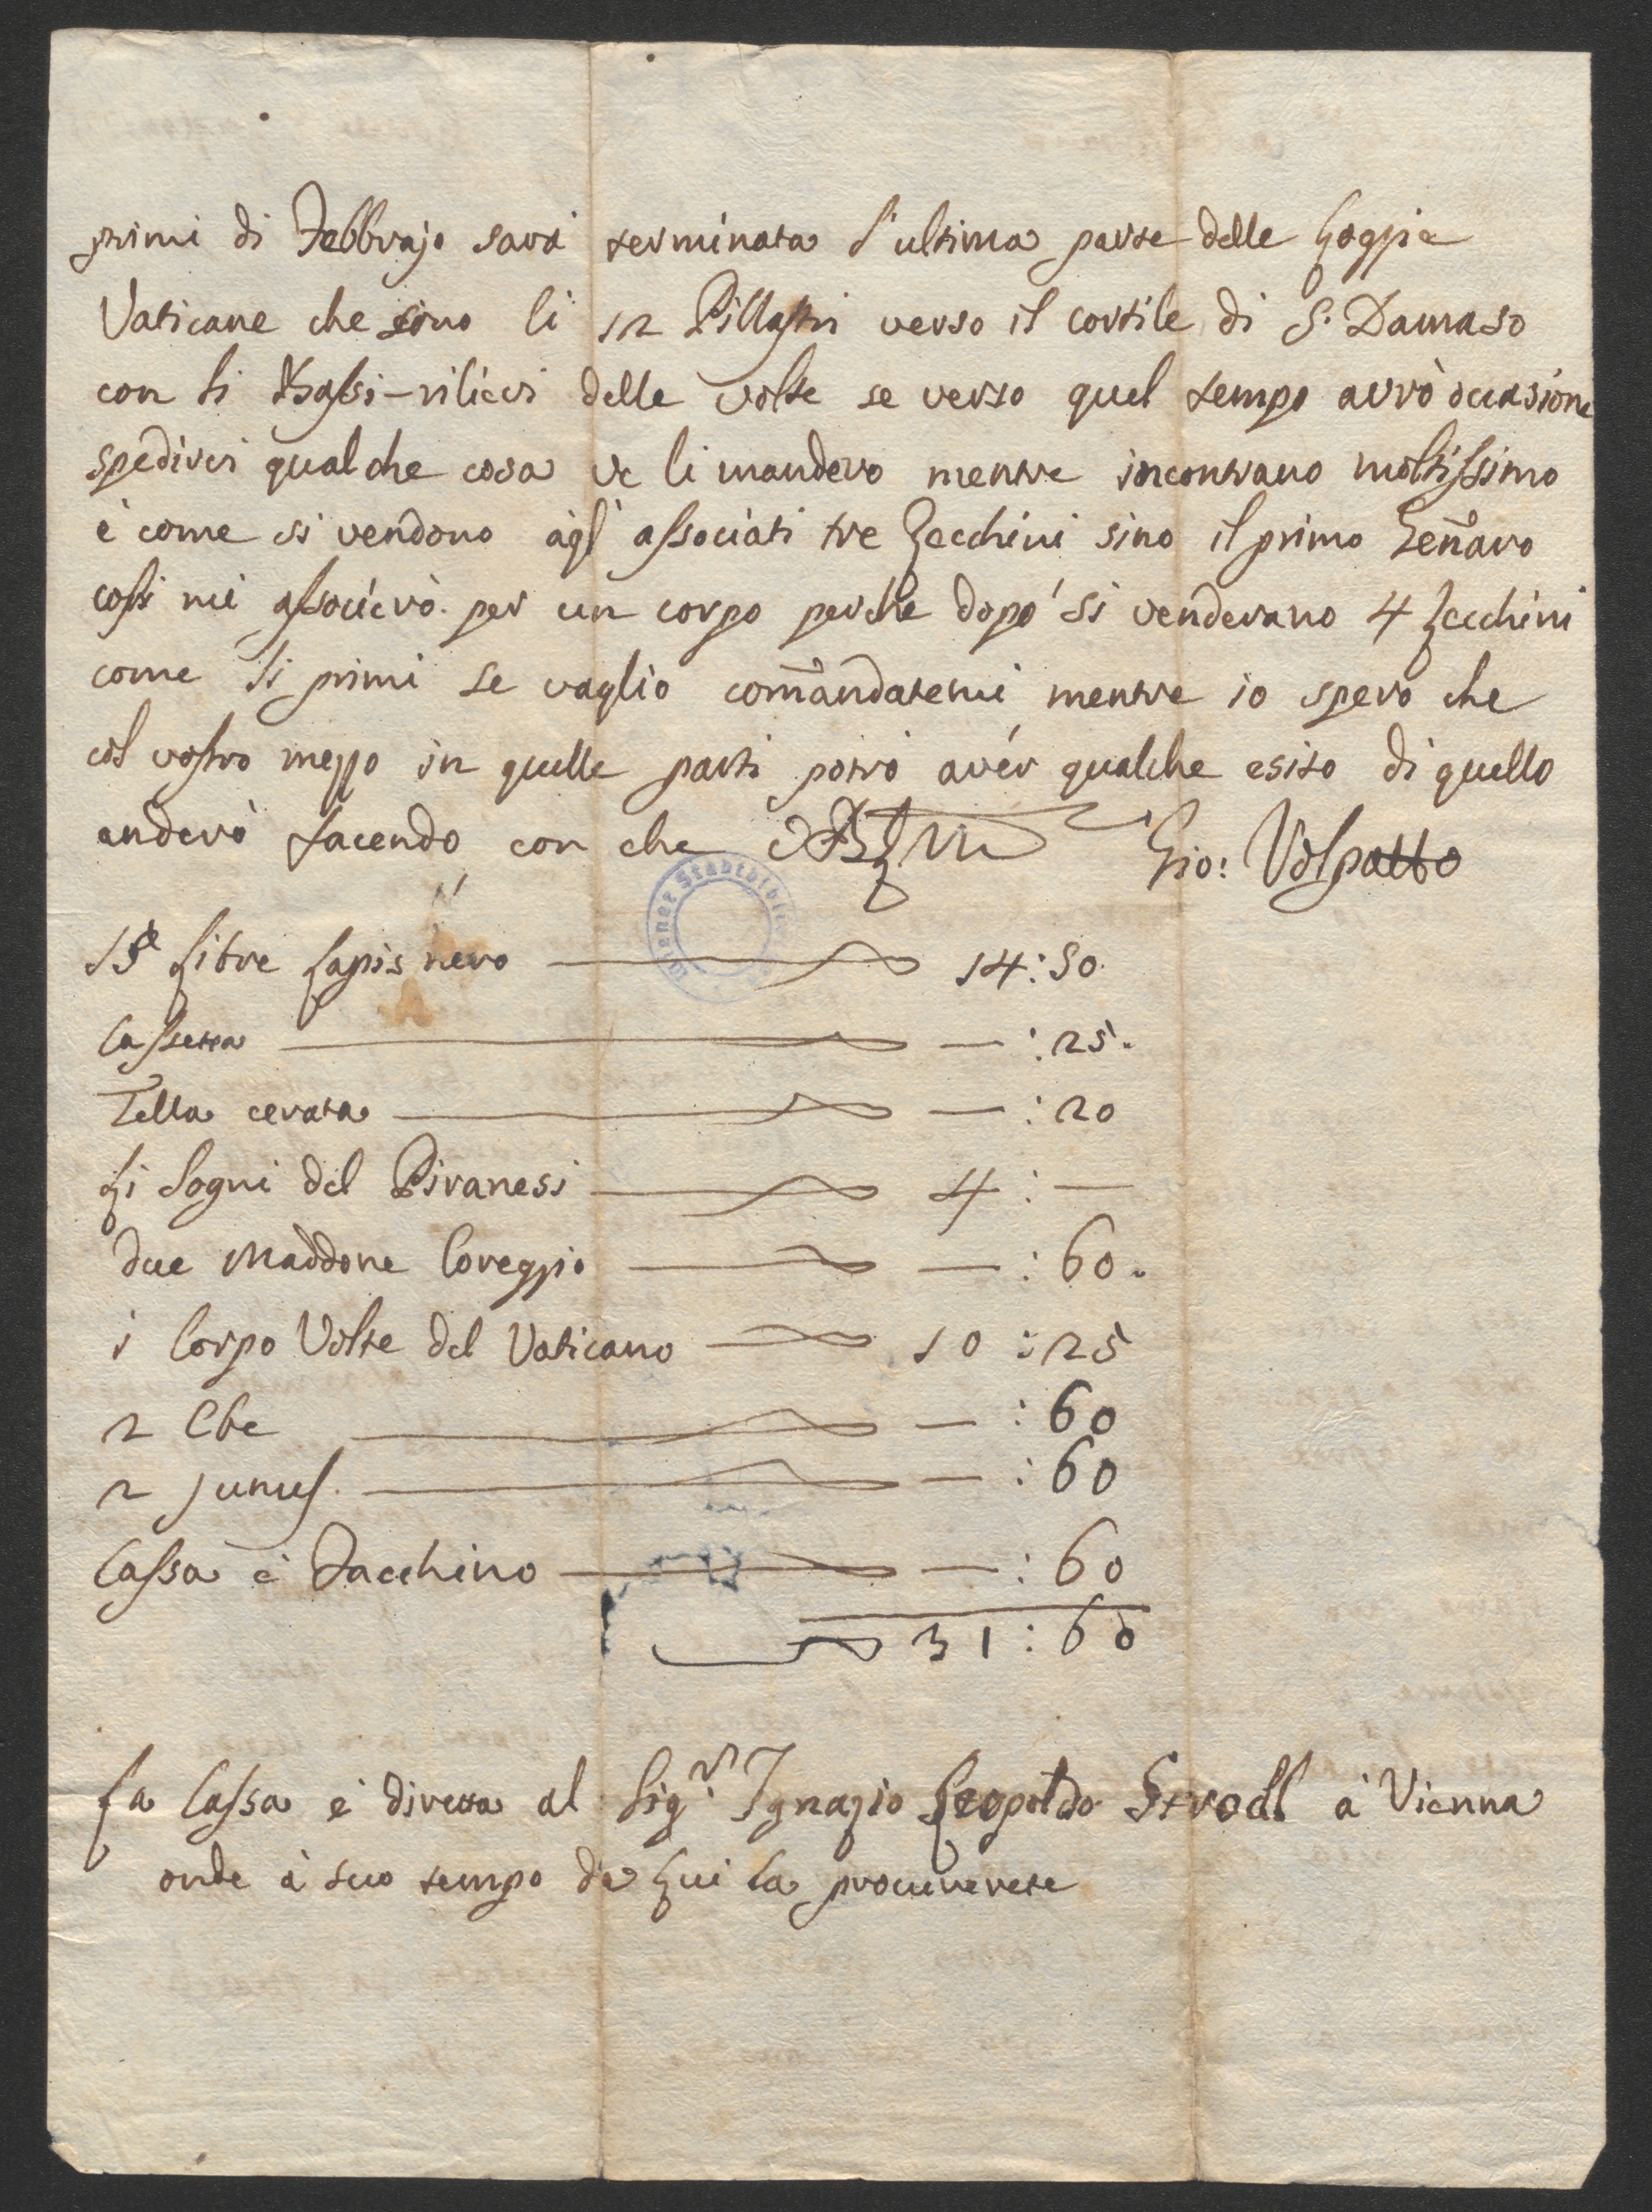 primi di Febbrajo sarà terminata l'ultima parte delle Loggie
Vaticane che sono li 12 Pillastri verso il cortile di S. Damaso
con li Bassi-rilievi delle volte se verso quel tempo avrò occasione
spedirvi qualche cosa ve li manderò mentre incontrano moltissimo
è come si vendono agl' associati tre Zecchini sino il primo Genaro
cossi mi associerò per un corpo perche dopo si venderano 4 Zecchini
come li primi se vaglio comandatemi mentre io spero che
col vostro mezzo in quelle parti potrò avér qualche esito di quello
anderò facendo con che
Gio: Volpatto
Libre Lapis nero 14:50.
Cassetta — :25.
Tella cerata — :20
Li Sogni del Piranesi 4:—
due Maddone Coreggio — :60.
1 Corpo Volte del Vaticano 10:25
2 Ebe — :60
2 Junus. — :60
Cassa è Facchino — :60
31:60
La Cassa è diretta al Sigr. Ignazio Leopoldo Strodl à Vienna
onde à suo tempo da Lui la procurerete
Wiener Stadtbiblio